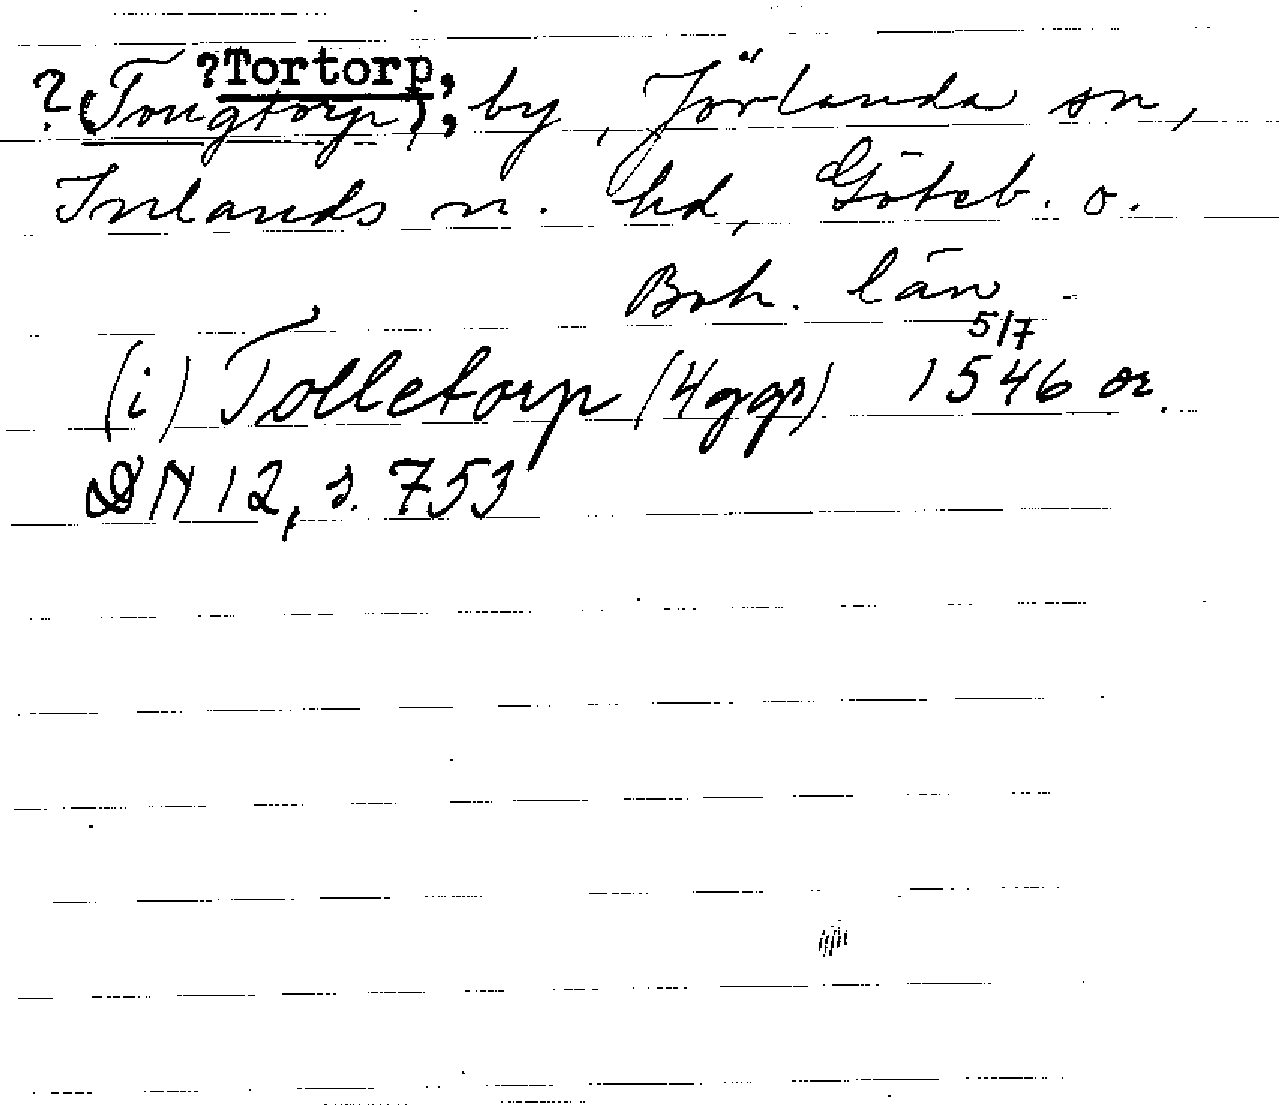 ?Tortorp,
?(Tougtorp), by, Jörlanda sn,
Inlands n. hd, Göteb. o.
Boh. län
(i) Tolletorp (4 ggr) 5/7 1546 or.
DN 12, s. 753